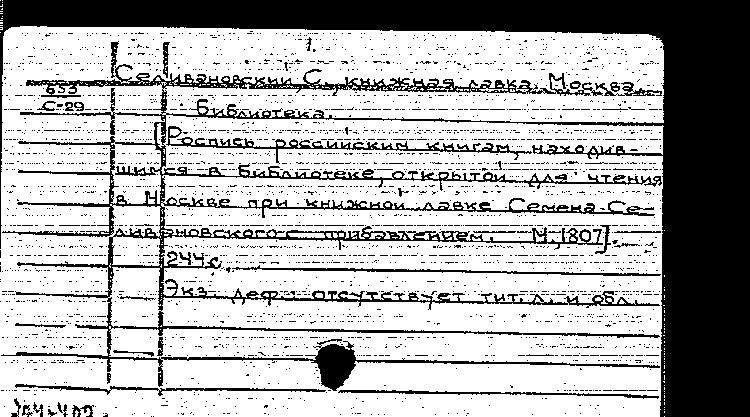 1.
Селивановский С., книжная лавка. Москва.
653
С-29
Библиотека.
[Роспись российским книгам, находив-
шимся в библиотеке, открытой для чтения
в Москве при книжной лавке Семена Се-
ливановского с прибавлением. М., 1807].
244 с.
Экз. деф.: отсутствует тит. л. и обл.